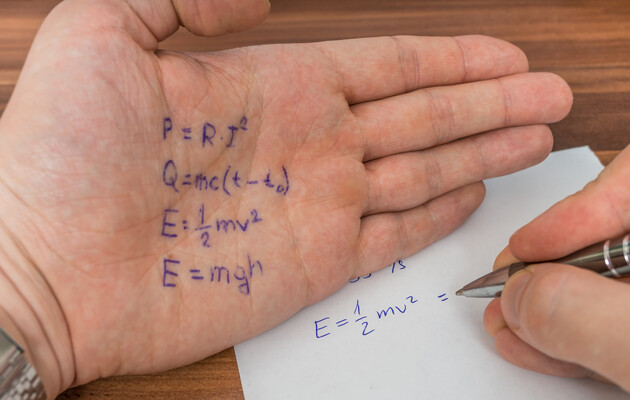 P = R·I²
Q = mc(t - t₀)
E = 1/2 mv²
E = mgh
E = 1/2 mv² =